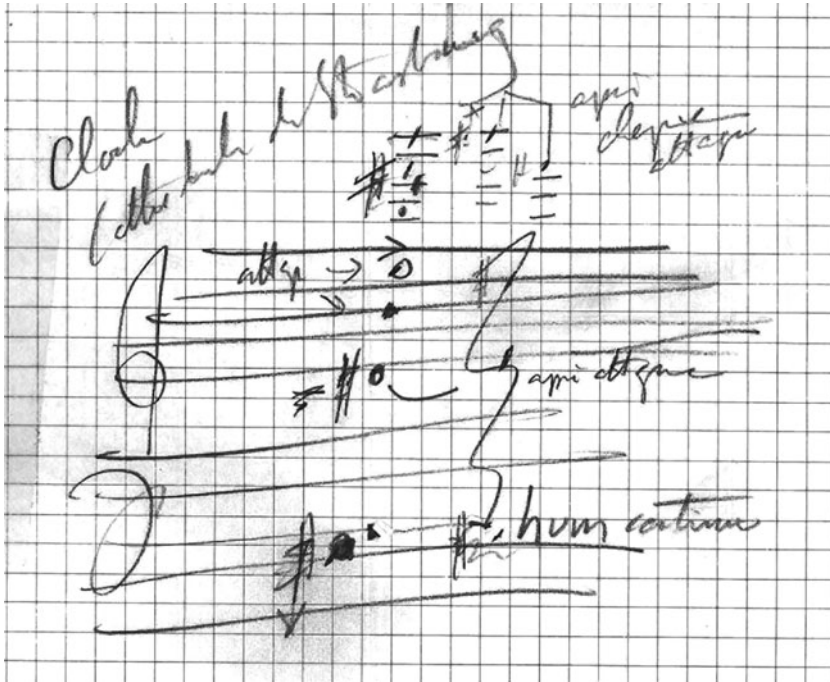 Cloche
Cathédrale de Strasbourg
après
attaque
après attaque
hum continu